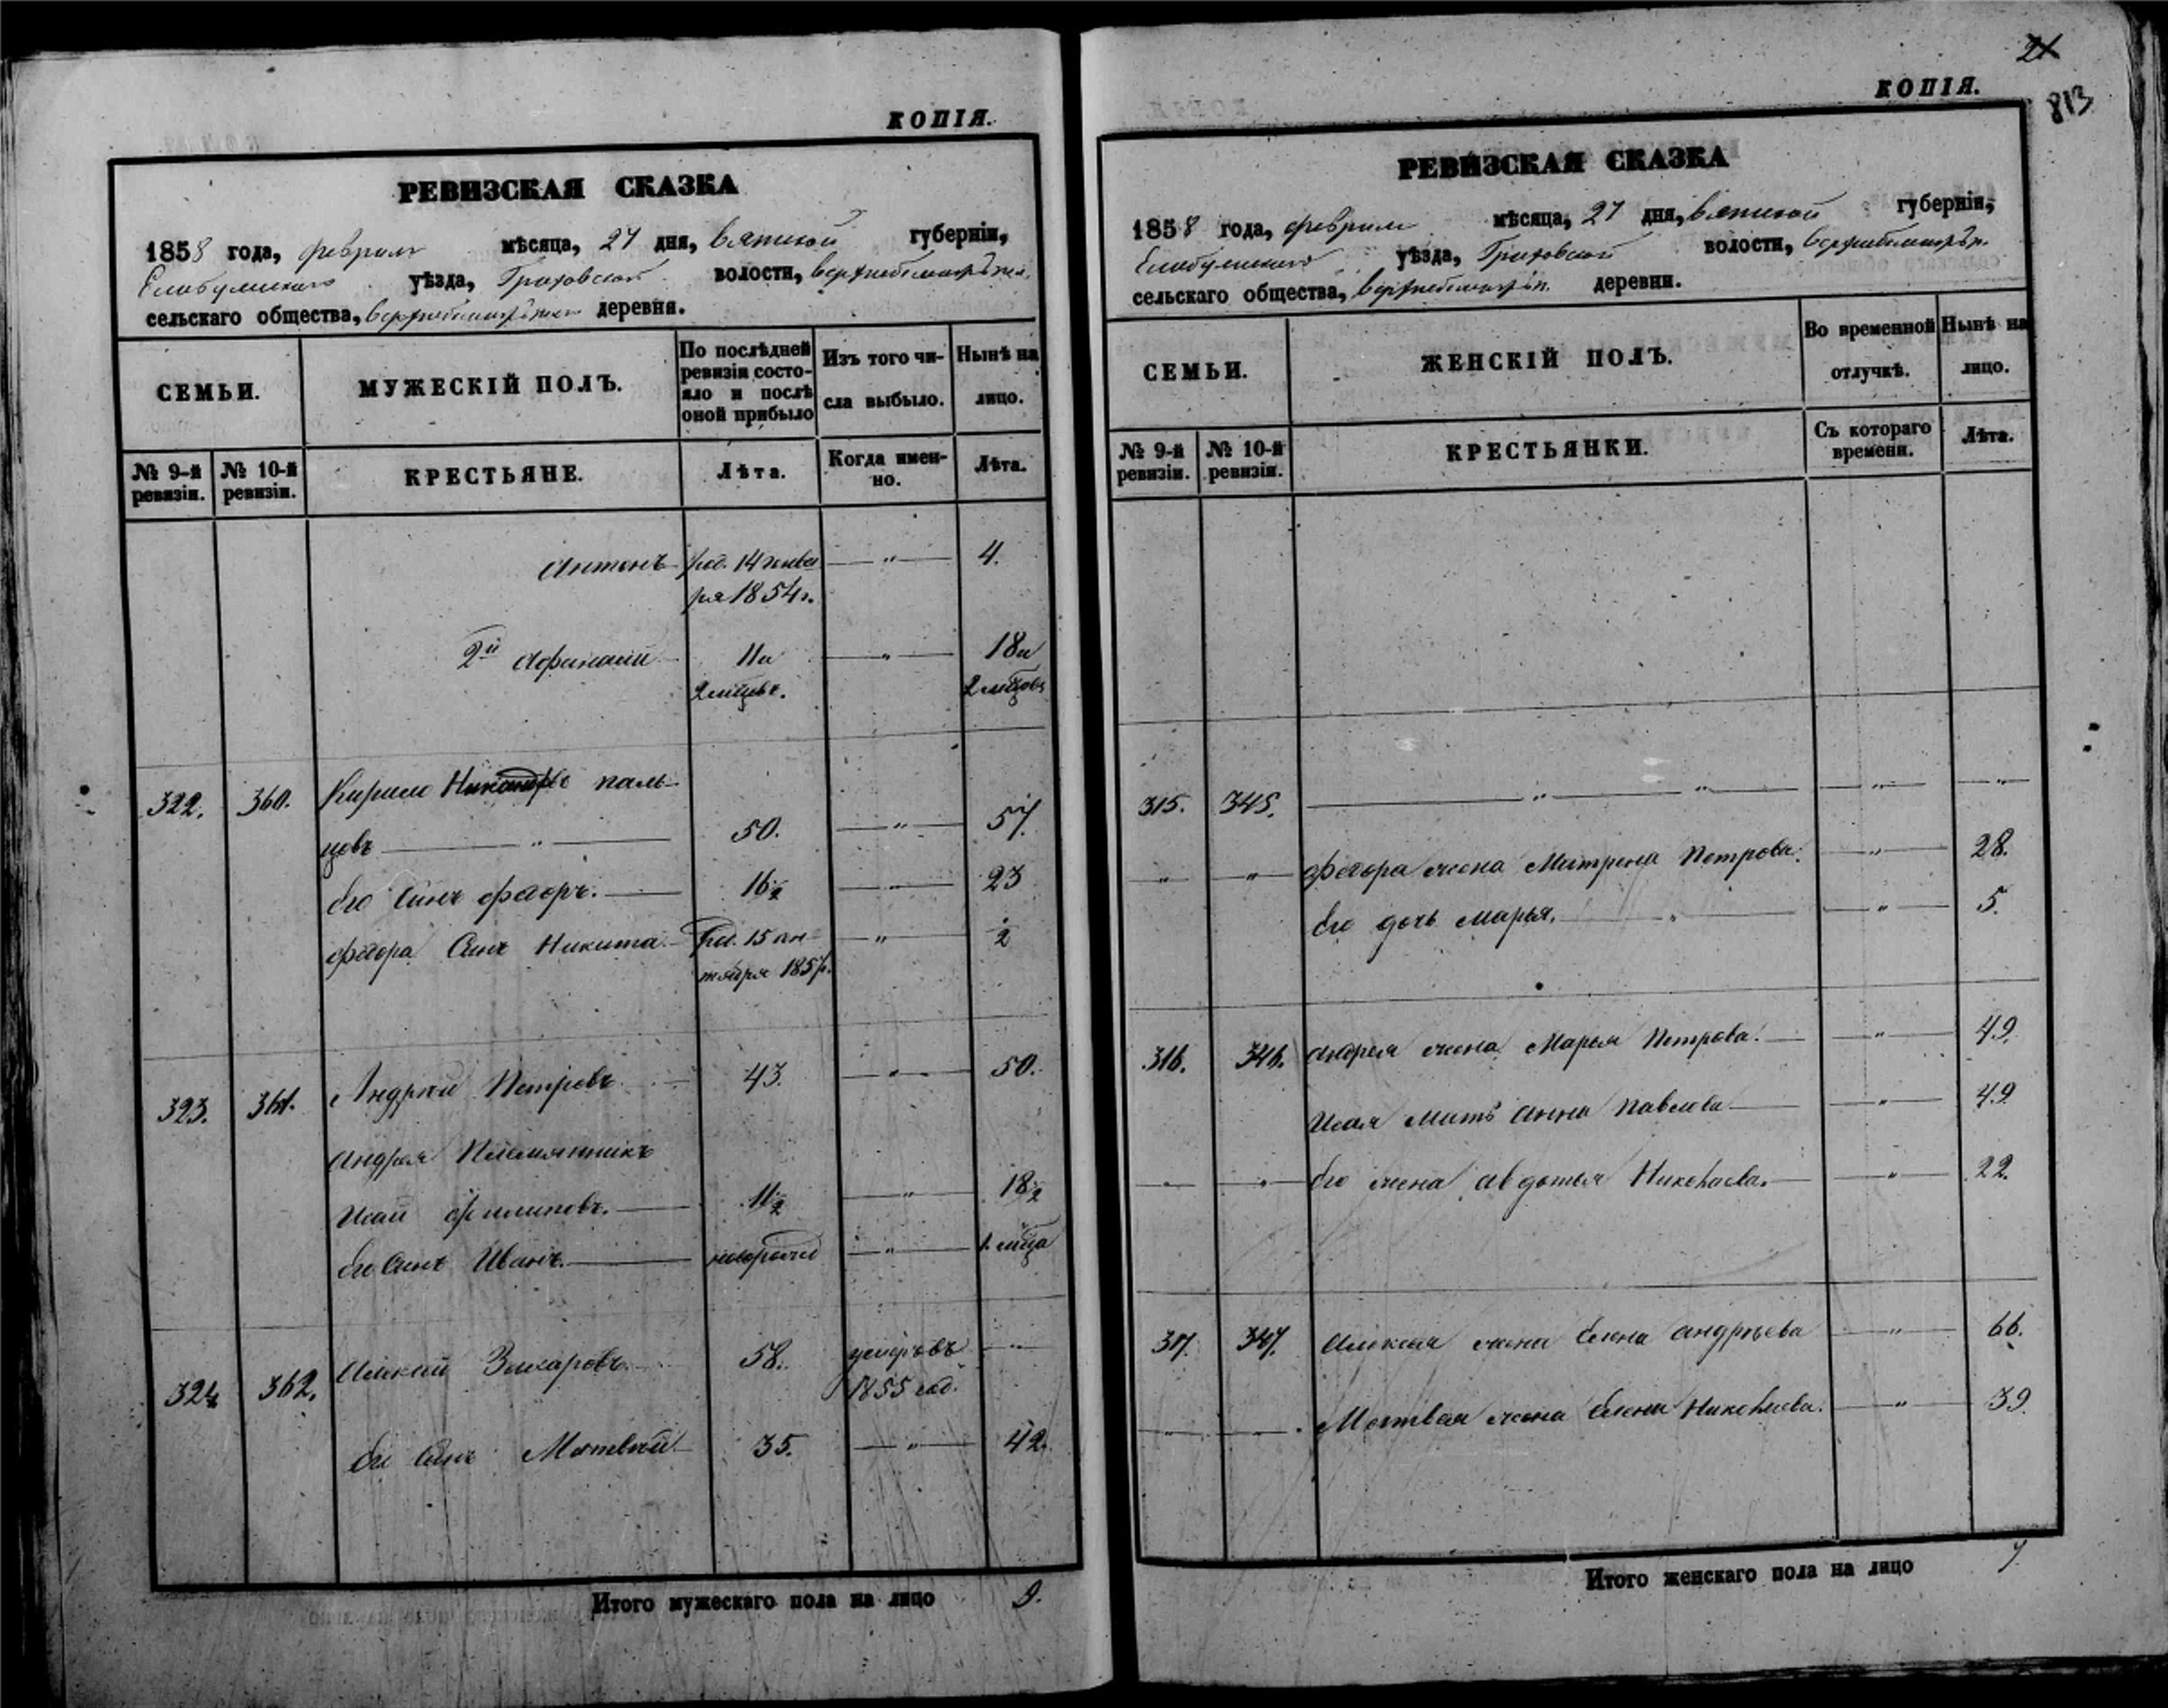 КОПІЯ.
РЕВИЗСКАЯ СКАЗКА
1858 года, февраля мѣсяца, 27 дня, Вятской губерніи,
Елабужскаго уѣзда, Граховской волости,
сельскаго общества, деревни.
СЕМЬИ.
МУЖЕСКІЙ ПОЛЪ.
По послѣдней ревизіи состо-
яло и послѣ оной прибыло
Изъ того чи-
сла выбыло.
Нынѣ на лицо.
№ 9-й ревизіи.
№ 10-й ревизіи.
КРЕСТЬЯНЕ.
Лѣта.
Когда имен-
но.
Лѣта.
Антонъ род. 14 янва — " — 4.
ря 1854 г.
2й Афанасій 11 и — " — 18 и
2 мцвъ. 2 мцовъ
322. 360. Кирило паль-
цовъ — " — 50. — " — 57.
Его Сынъ Федоръ. 16½ — " — 23
Федора Сынъ Никита род. 15 ок — " — ½
тября 1857.
323. 361. Андрей Петровъ 43. — " — 50.
Андрея Племянникъ
Исай Филиповъ. 11½ — " — 18½
Его Сынъ Иванъ. новорожд — " — 1 мца
324 362. Алексей Захаровъ 58. умеръ въ — " —
1855 год.
Его Сынъ Матвей 35. — " — 42.
Итого мужескаго пола на лицо 9.
21
КОПІЯ.
813
РЕВИЗСКАЯ СКАЗКА
1858 года, февраля мѣсяца, 27 дня, Вятской губерніи,
Елабужскаго уѣзда, Граховской волости,
сельскаго общества, деревни.
СЕМЬИ.
ЖЕНСКІЙ ПОЛЪ.
Во временной
отлучкѣ.
Нынѣ на
лицо.
№ 9-й ревизіи.
№ 10-й ревизіи.
КРЕСТЬЯНКИ.
Съ котораго
времени.
Лѣта.
315. 345. — " — " — — " — — " —
— " — — " — Федора жена Матрена Петрова. — " — 28.
Его дочь Марья. — " — — " — 5.
316. 346. Андрея жена Марья Петрова. — " — 49.
Исая Мать Анна Павлова — " — 49
— — " — Его жена Авдотья Николаева. — " — 22.
317. 347. Алексея жена Елена Андреева — " — 66.
— " — — Матвея жена Елена Николаева. — " — 39
Итого женскаго пола на лицо 7